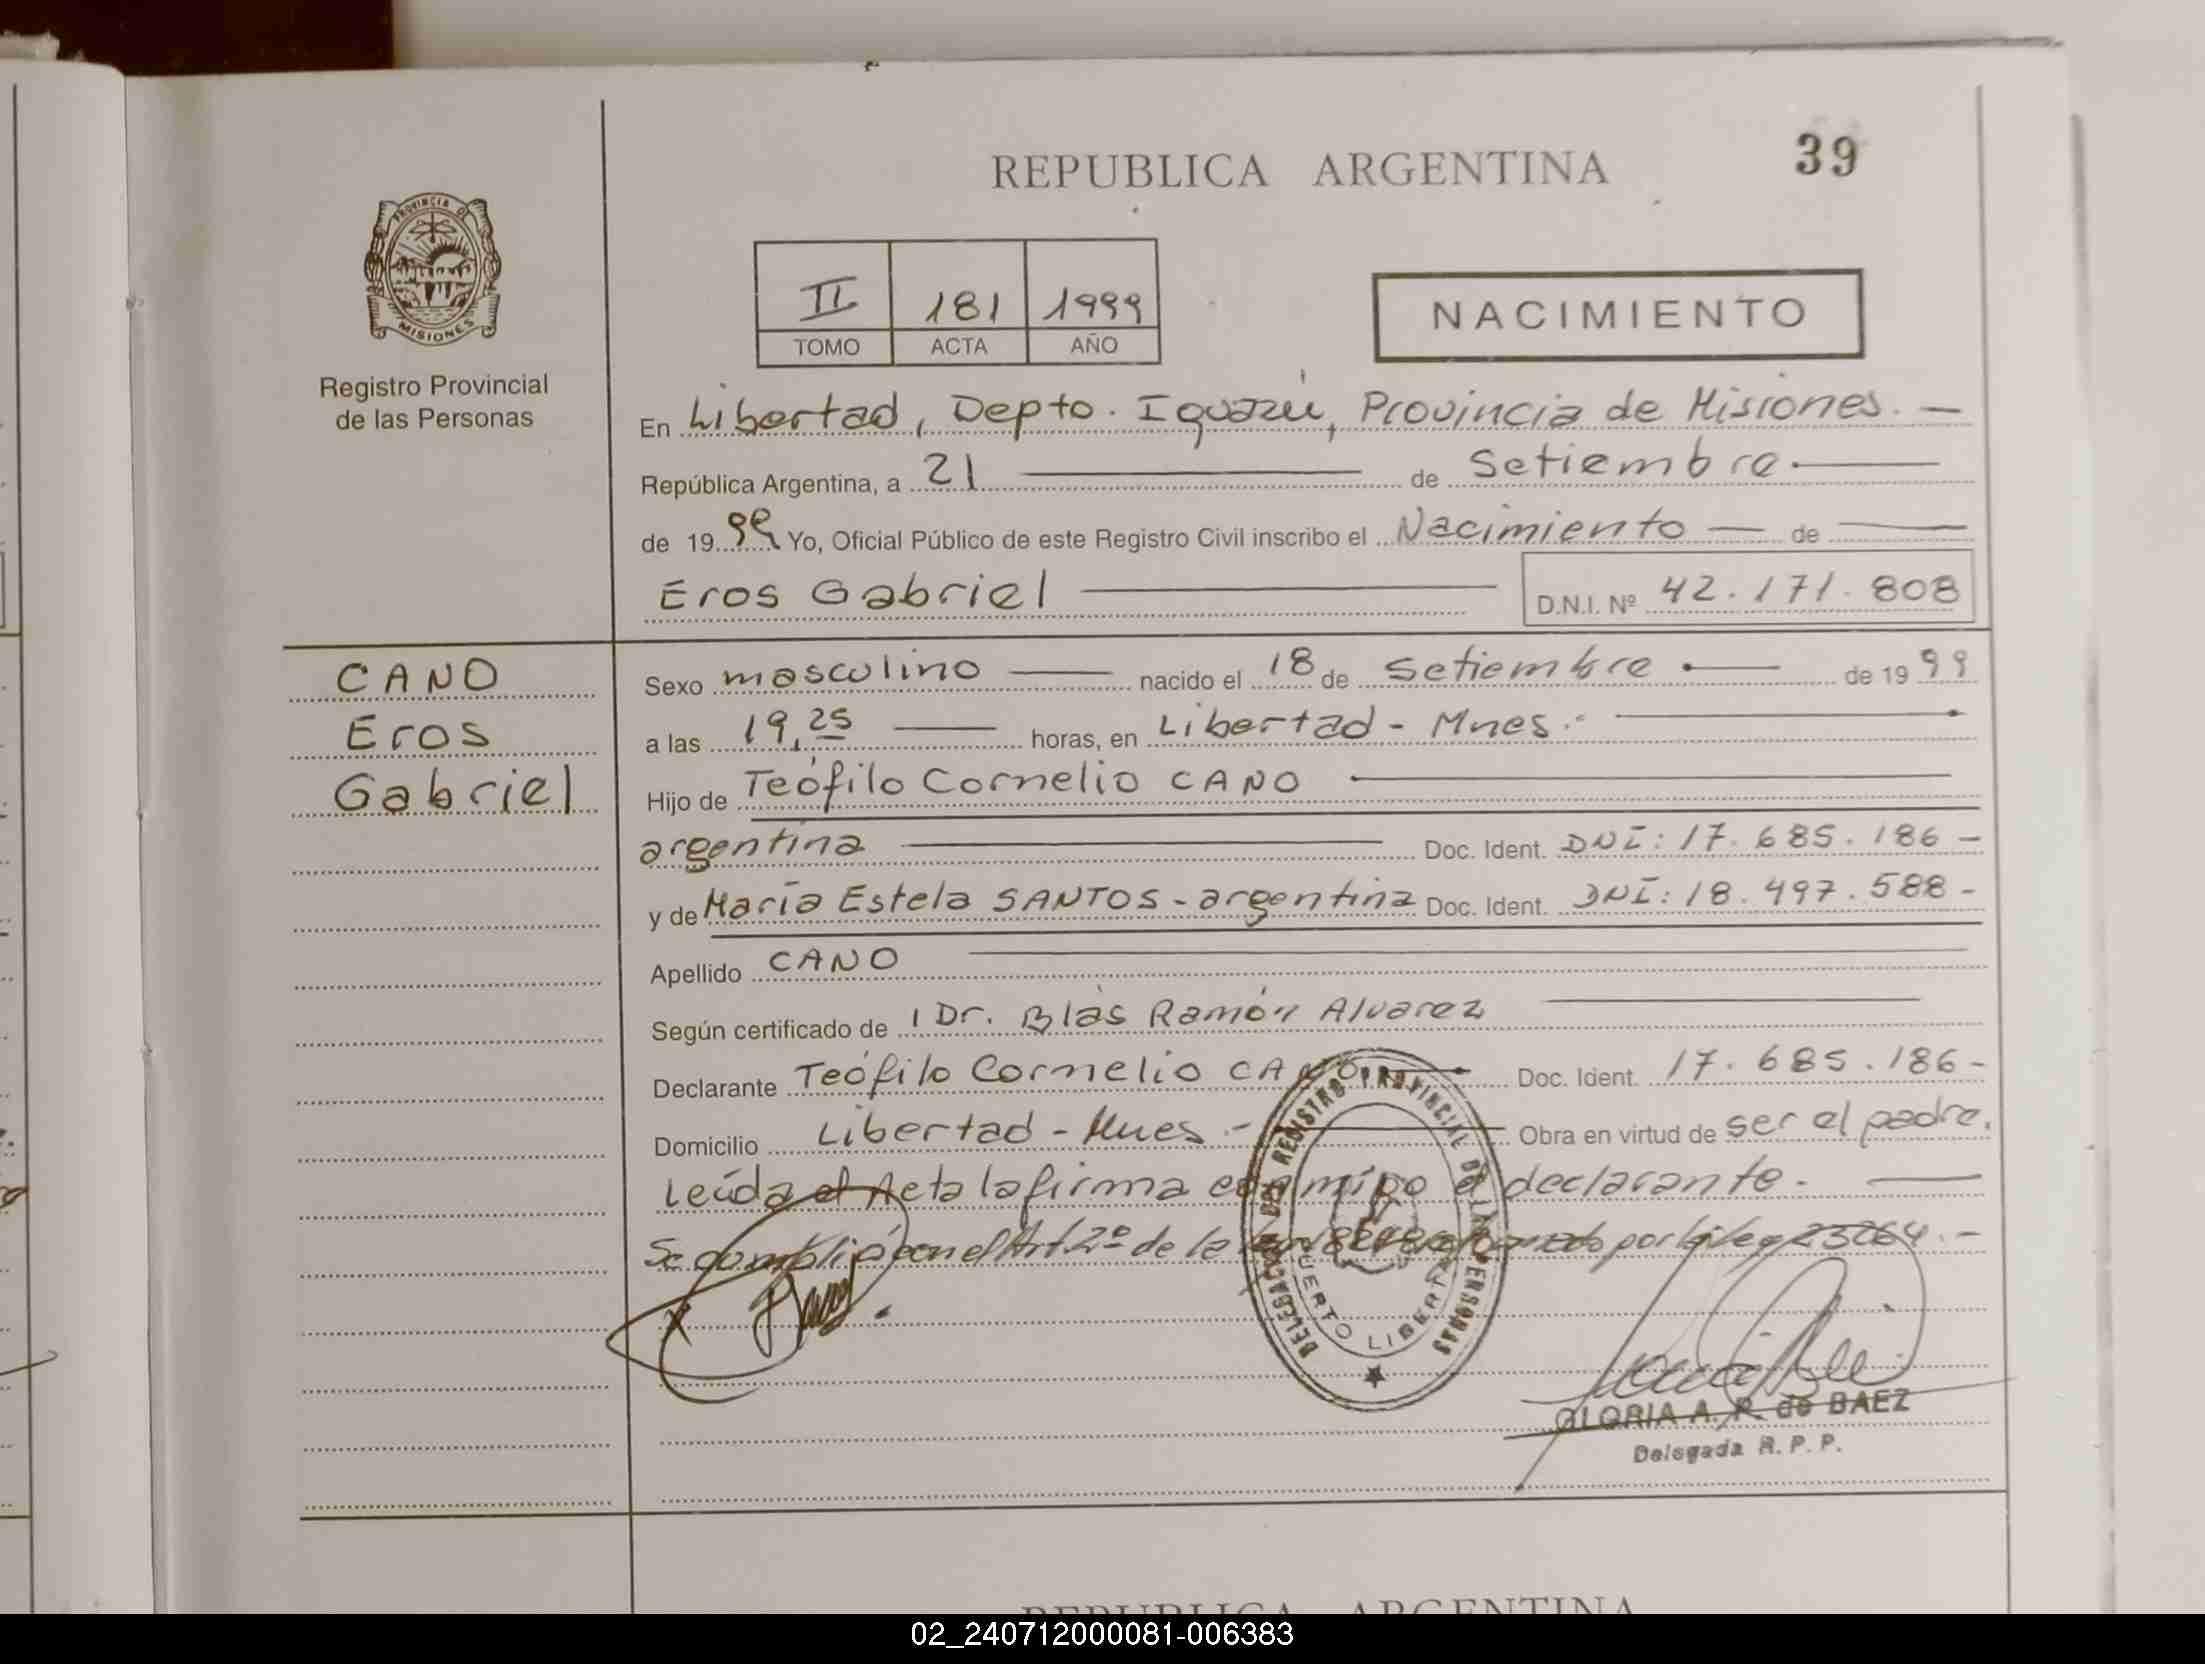 REPUBLICA ARGENTINA
39
PROVINCIA DE
MISIONES
Registro Provincial
de las Personas
II 181 1999
TOMO ACTA AÑO
NACIMIENTO
En Libertad, Depto. Iguazú, Provincia de Misiones. —
República Argentina, a 21 — de Setiembre. —
de 1999 Yo, Oficial Público de este Registro Civil inscribo el Nacimiento — de —
Eros Gabriel — D.N.I. Nº 42.171.808
CANO
Eros
Gabriel
Sexo masculino — nacido el 18 de Setiembre — de 1999
a las 19,25 — horas, en Libertad - Mnes. —
Hijo de Teófilo Cornelio CANO —
argentina — Doc. Ident. DNI: 17.685.186 -
y de María Estela SANTOS - argentina Doc. Ident. DNI: 18.497.588 -
Apellido CANO —
Según certificado de Dr. Blas Ramón Alvarez —
Declarante Teófilo Cornelio CANO — Doc. Ident. 17.685.186 -
Domicilio Libertad - Mnes. - — Obra en virtud de ser el padre.
Leída el Acta la firma conmigo el declarante. —
Se cumplió con el Art. 2º de la por la Ley 23264. -
DELEGACION DEL REGISTRO PROVINCIAL DE LAS PERSONAS
PUERTO LIBERTAD
GLORIA A. R. de BAEZ
Delegada R. P. P.
REPUBLICA ARGENTINA
02_240712000081-006383